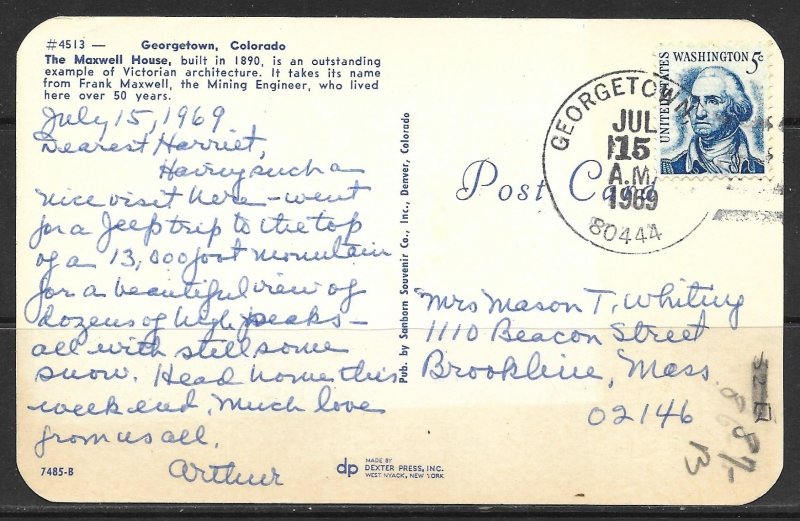 #4513 — Georgetown, Colorado
The Maxwell House, built in 1890, is an outstanding
example of Victorian architecture. It takes its name
from Frank Maxwell, the Mining Engineer, who lived
here over 50 years.
July 15, 1969
Dearest Harriet,
Having such a
nice visit here - went
for a Jeep trip to the top
of a 13,000 foot mountain
for a beautiful view of
dozens of high peaks -
all with still some
snow. Head home this
weekend. Much love
from us all,
Arthur
7485-B
Pub. by Sanborn Souvenir Co., Inc., Denver, Colorado
dp MADE BY
DEXTER PRESS, INC.
WEST NYACK, NEW YORK
Post Card
GEORGETOWN
JUL
15
A.M.
1969
80444
UNITED STATES
WASHINGTON 5c
Mrs Mason T. Whiting
1110 Beacon Street
Brookline, Mass.
02146